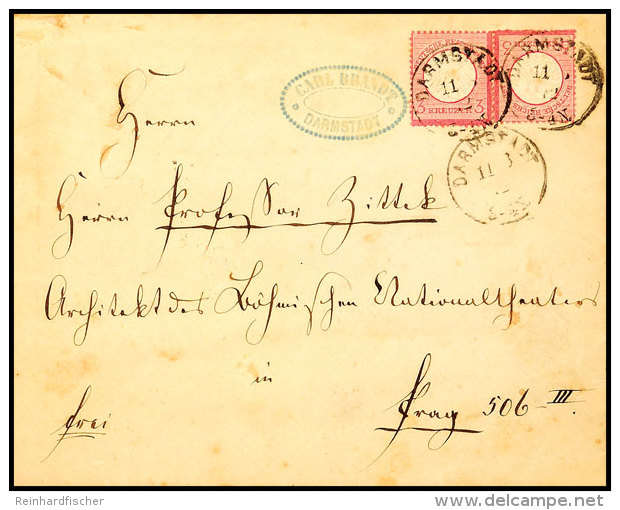 CARL BRANDT
DARMSTADT
3 KREUZER 3
DARMSTADT
11
DARMSTADT
11
DARMSTADT
11
Herrn
Herrn Professor Zittek
Architekt des Böhmischen Nationaltheaters
in
frei
Prag 506-III.
Reinhardfischer
delcampe.net